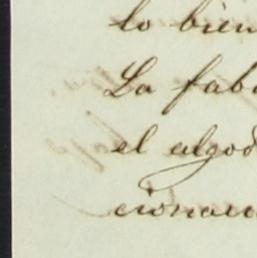 lo bien
La fab
el algod
cionar